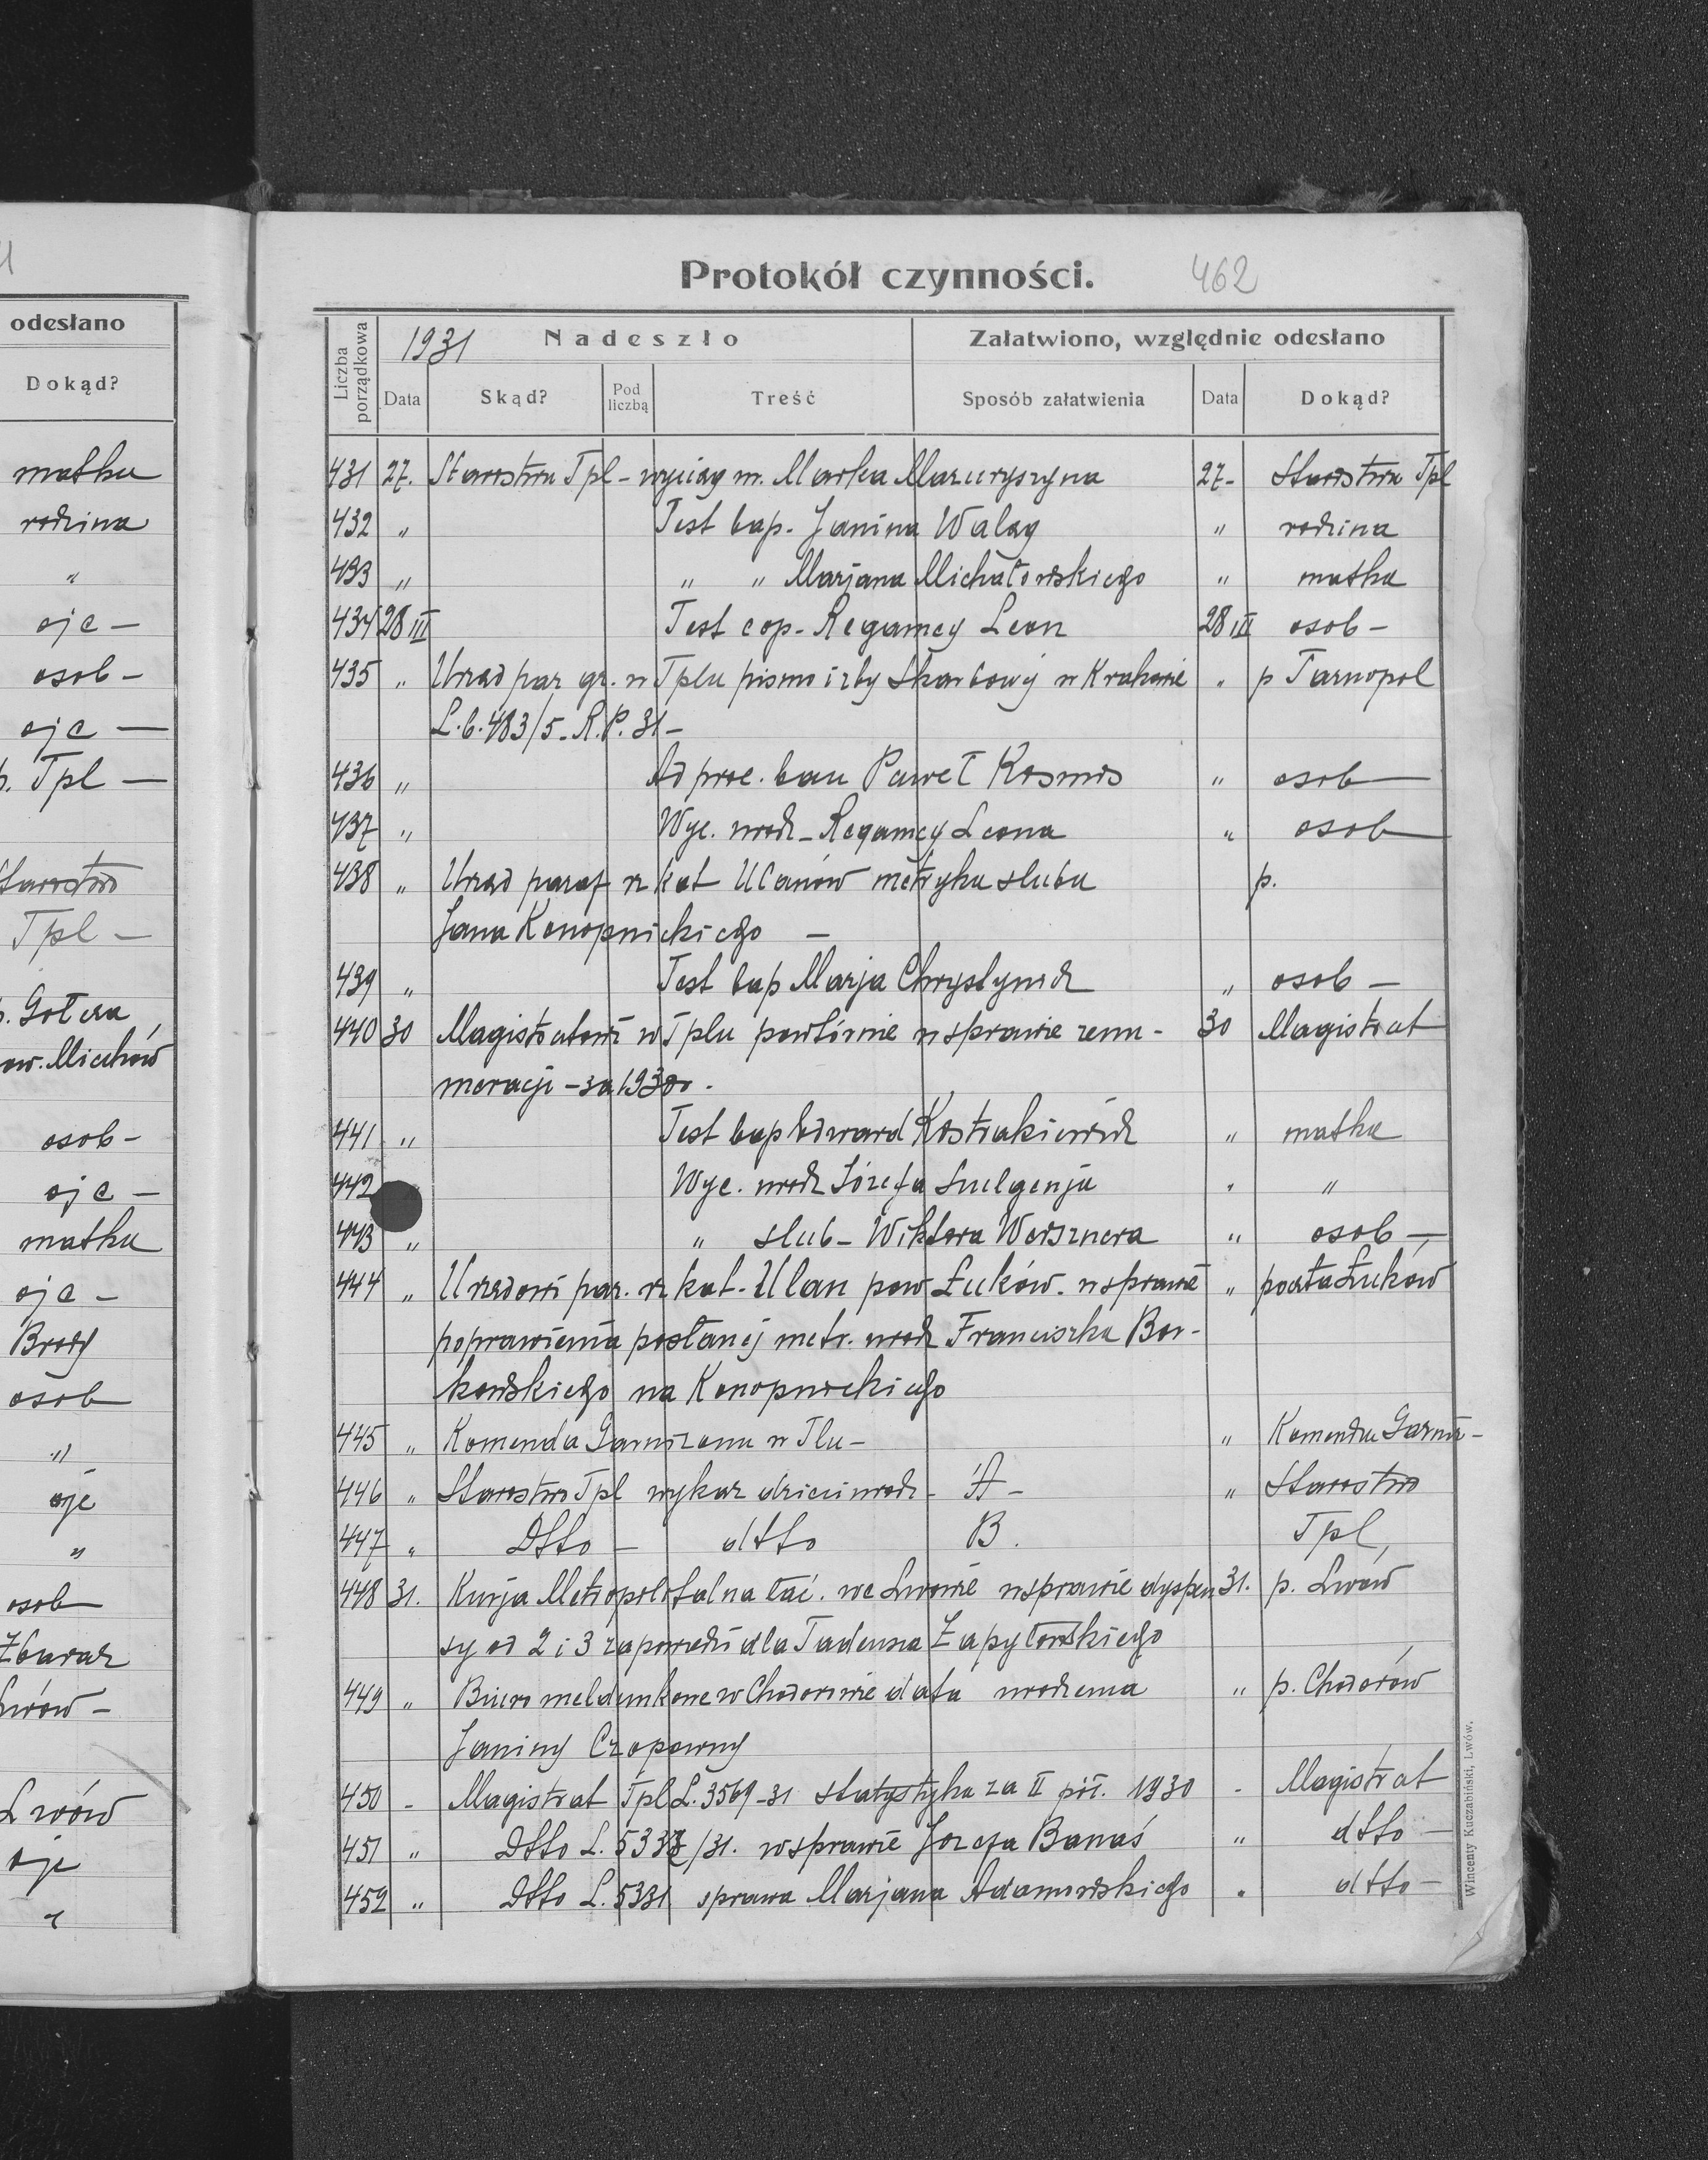 odesłano
Dokąd?
matka
rodzina
"
ojc —
osob —
ojc —
p. Tpl —
Starostwo
Tpl —
p. Gołcza
pow. Miechów
osob —
ojc —
matka
ojc —
Brody
osob
"
ojc
"
osob
Zbaraż
Lwów —
Lwów
ojc
Protokół czynności. 462
Liczba porządkowa
1931 Nadeszło Załatwiono, względnie odesłano
Data Skąd? Pod liczbą Treść Sposób załatwienia Data Dokąd?
431 27. Starostwu Tpl - wyciąg m. Marka Mazuryszyna 27- Starostwu Tpl
432 " Test bap. Janina Waląg " rodzina
433 " " " Marjana Michałowskiego " matka
434 28 III Test cop. Regamey Leon 28 III osob -
435 " Urząd par gr. w Tplu pismo izby Skarbowej w Krakowie " p Tarnopol
L.b. 483/5 - R.P. 31 -
436 " Ad proc. ban Paweł Kosmos " osob —
437 " Wyc. urodz - Regamey Leona " osob
438 " Urząd paraf rz kat Ulanów metryka slubu p.
Jana Konopnickiego —
439 " Test bap Marja " osob -
440 30 Magistratowi w Tplu powtórnie w sprawie renu- 30 Magistrat
meracji - za 1930 .
441 " Test bap Edward Kostrakiewicz " matka
442 Wyc. urodz Józefa " "
443 " " slub - Wiktora Weisznera " osob —
444 " Urzędowi par. rz kat. Ulan pow Łuków. w sprawie " poczta Łuków
poprawienia posłanej metr. urodz Franciszka Bor-
kowskiego na Konopnickiego
445 " Komenda Garnizonu w Tlu - " Komenda Garniz -
446 " Starostwo Tpl wykaz dzieci urodz - A - " Starostwo
447 " Dtto — dtto B. Tpl,
448 31. Kurja Metropolitalna łać. we Lwowie w sprawie dyspen 31. p. Lwów
sy od 2 i 3 zapowiedzi dla Tadeusza Zapytowskiego
449 " Biuro meldunkowe w Chodorowie data urodzenia " p. Chodorów
Janiny Czopowny
450 - Magistrat Tpl L. 3569 - 31 statystyka za II pół. 1930 - Magistrat
451 " Dtto L. 5332/31. w sprawie Jozefa Banaś " dtto —
452 " Dtto L. 5331 sprawa Marjana Adamowskiego " dtto —
Wincenty Kuczabiński, Lwów.